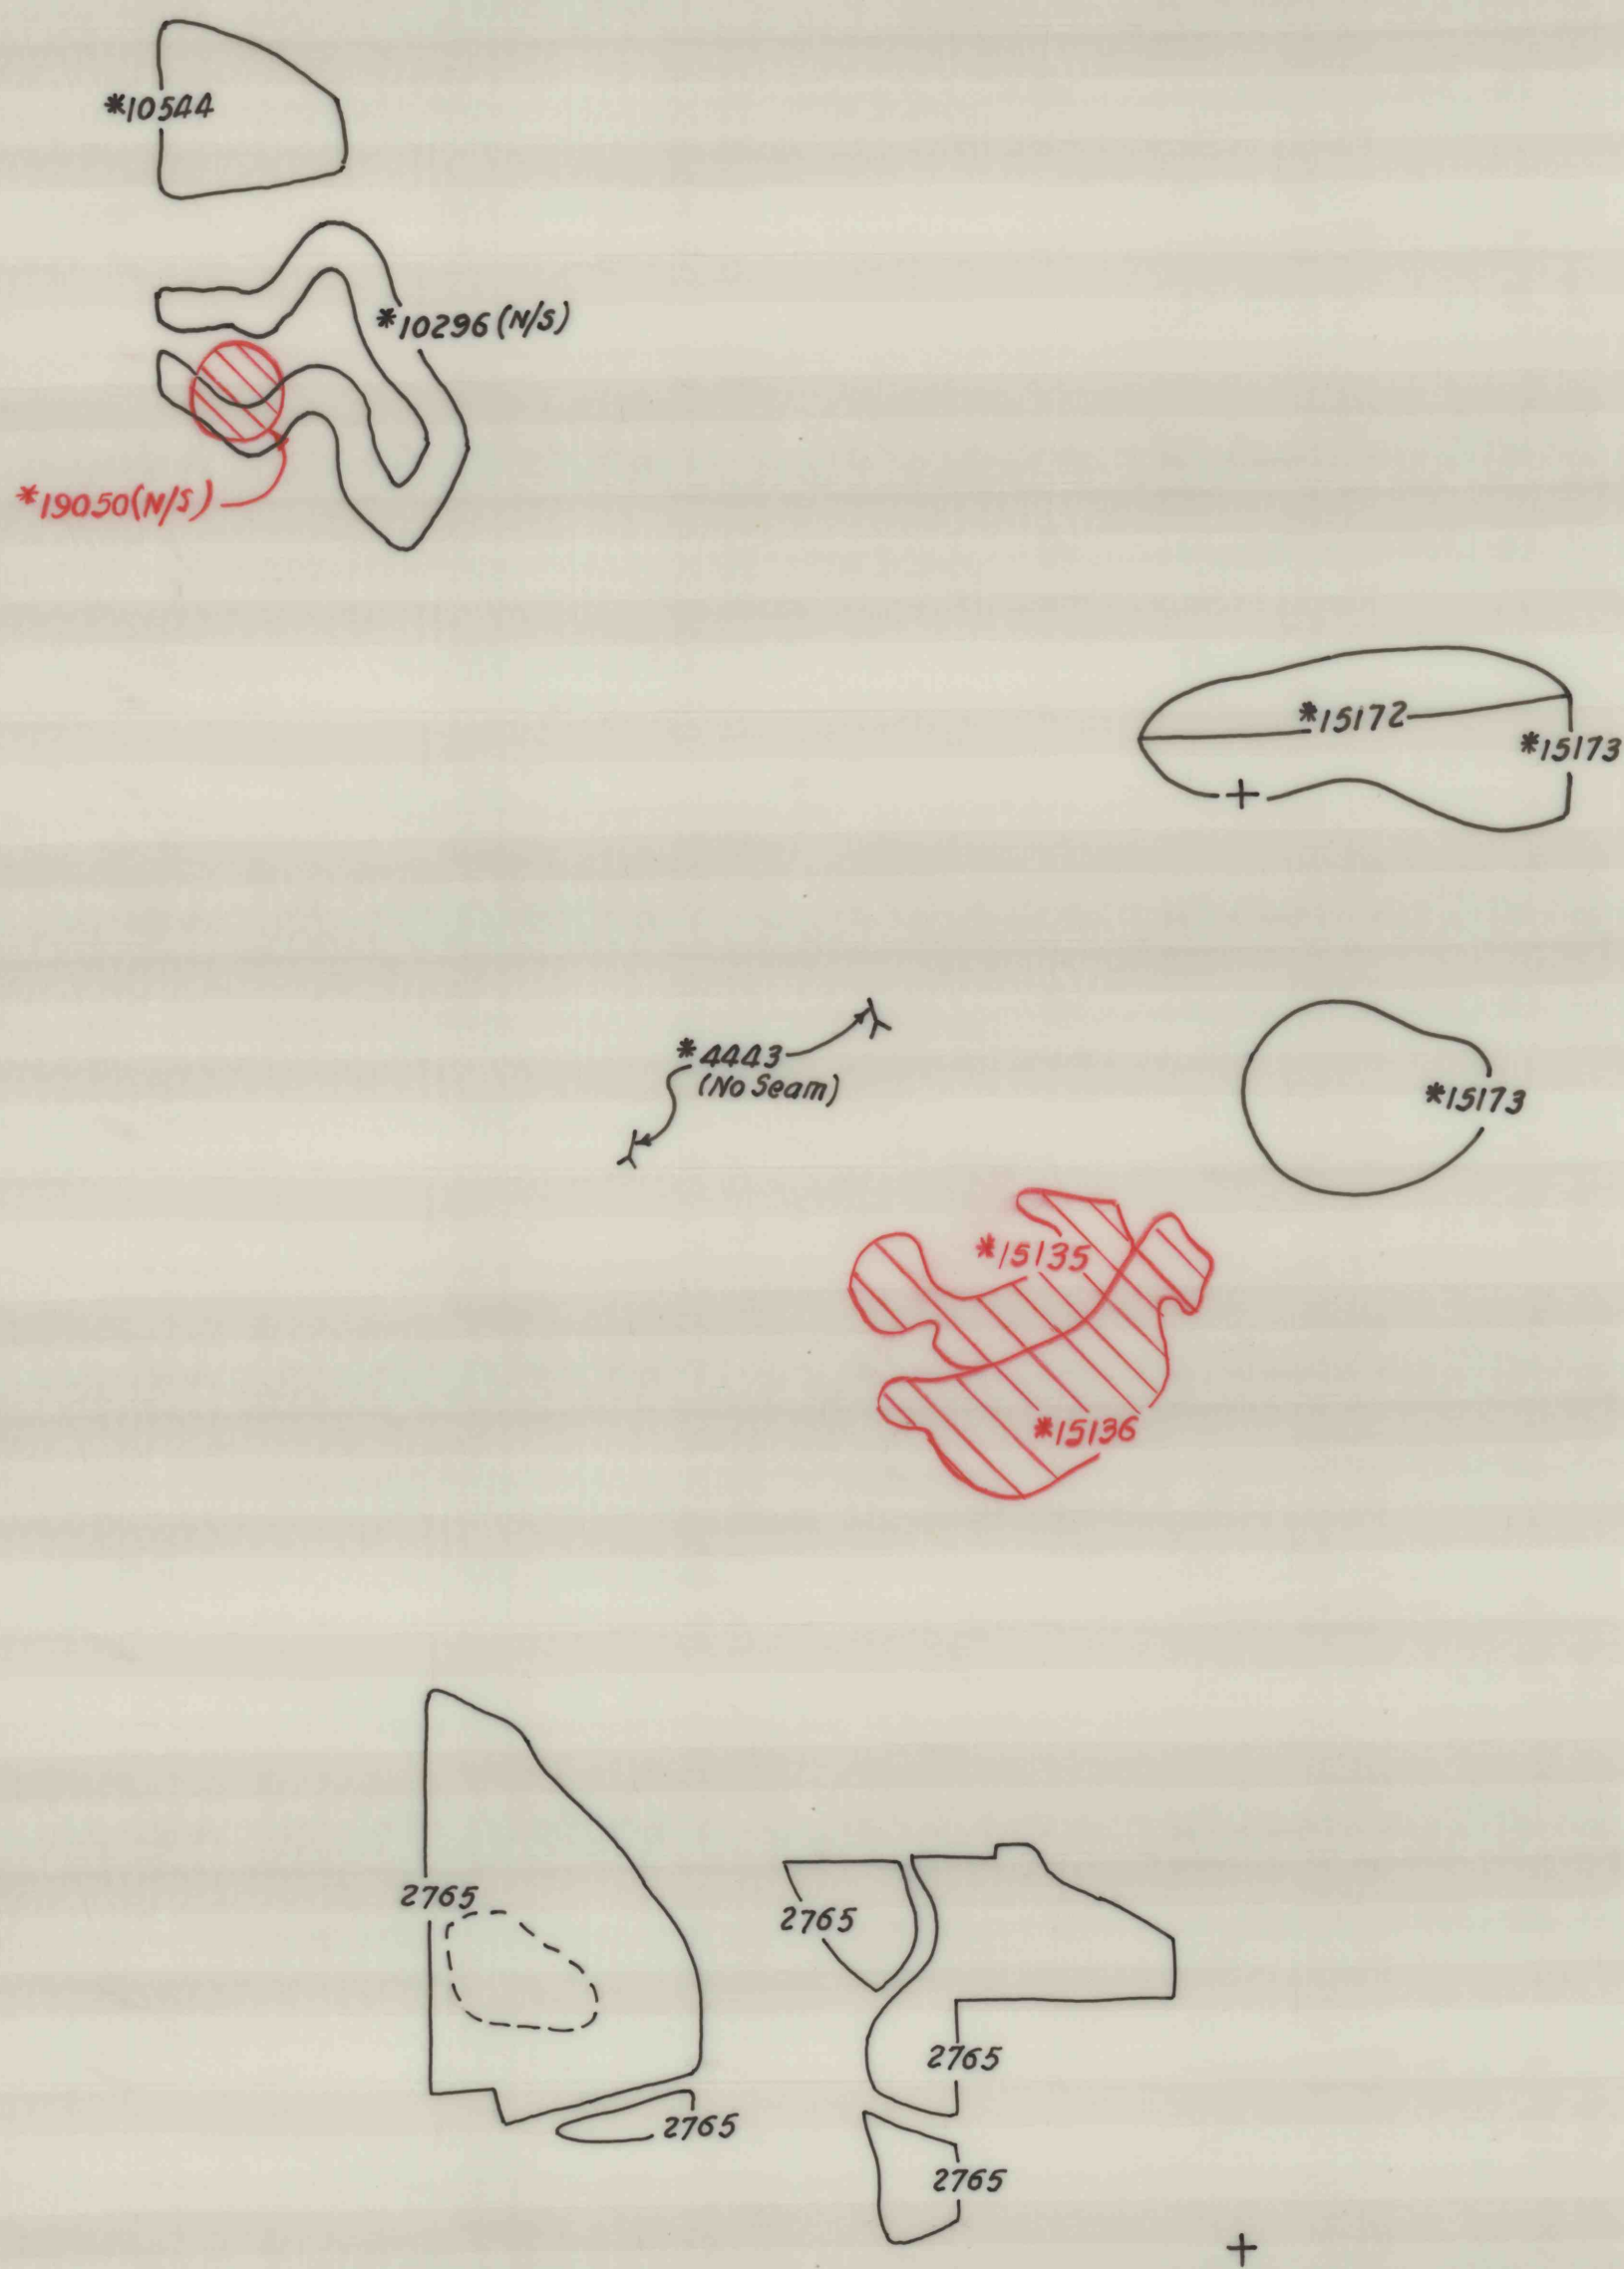 *10544
*10296 (N/S)
*19050 (N/S)
*15172
*15173
*4443
(No Seam)
*15173
*15135
*15136
2765
2765
2765
2765
2765